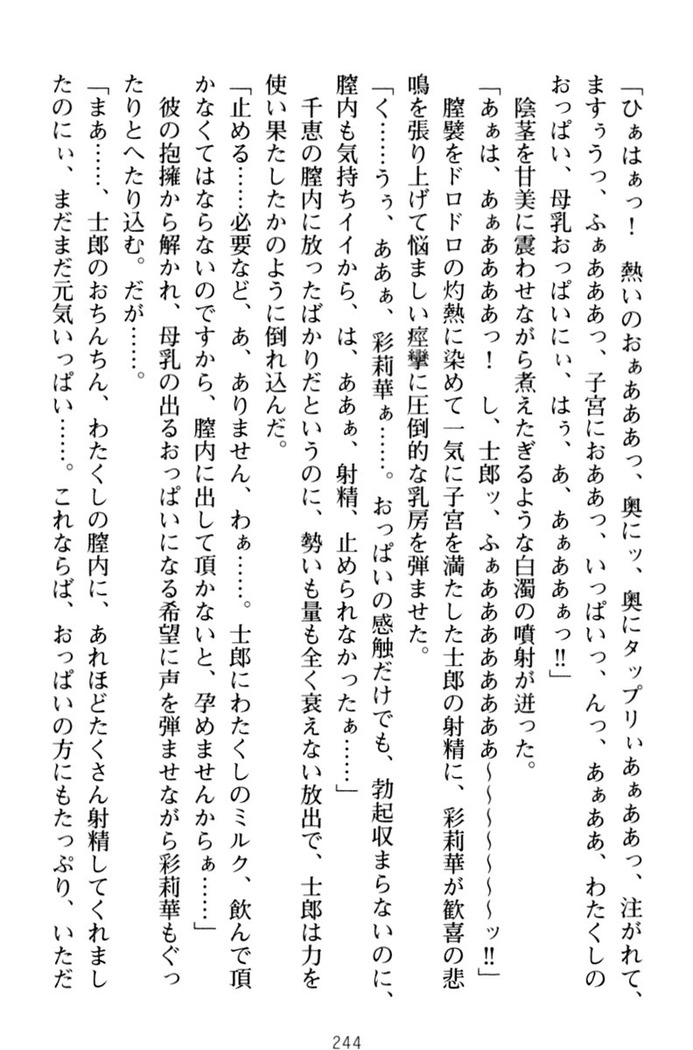 「ひぁはぁっ！　熱いのおぁあああっ、奥にッ、奥にタップリぃあぁああっ、注がれて、
ますぅうっ、ふぁあああっ、子宮におああっ、いっぱいっ、んっ、あぁああ、わたくしの
おっぱい、母乳おっぱいにぃ、はぅ、あ、あぁああぁっ‼」
　陰茎を甘美に震わせながら煮えたぎるような白濁の噴射が迸った。
「あぁは、あぁああああっ！　し、士郎ッ、ふぁああああああああ～～～～～～～ッ‼」
　膣襞をドロドロの灼熱に染めて一気に子宮を満たした士郎の射精に、彩莉華が歓喜の悲
鳴を張り上げて悩ましい痙攣に圧倒的な乳房を弾ませた。
「く……うぅ、ああぁ、彩莉華ぁ……。おっぱいの感触だけでも、勃起収まらないのに、
膣内も気持ちイイから、は、ああぁ、射精、止められなかったぁ……」
　千恵の膣内に放ったばかりだというのに、勢いも量も全く衰えない放出で、士郎は力を
使い果たしたかのように倒れ込んだ。
「止める……必要など、あ、ありません、わぁ……。士郎にわたくしのミルク、飲んで頂
かなくてはならないのですから、膣内に出して頂かないと、孕めませんからぁ……」
　彼の抱擁から解かれ、母乳の出るおっぱいになる希望に声を弾ませながら彩莉華もぐっ
たりとへたり込む。だが……。
「まあ……、士郎のおちんちん、わたくしの膣内に、あれほどたくさん射精してくれまし
たのにぃ、まだまだ元気いっぱい……。これならば、おっぱいの方にもたっぷり、いただ
244